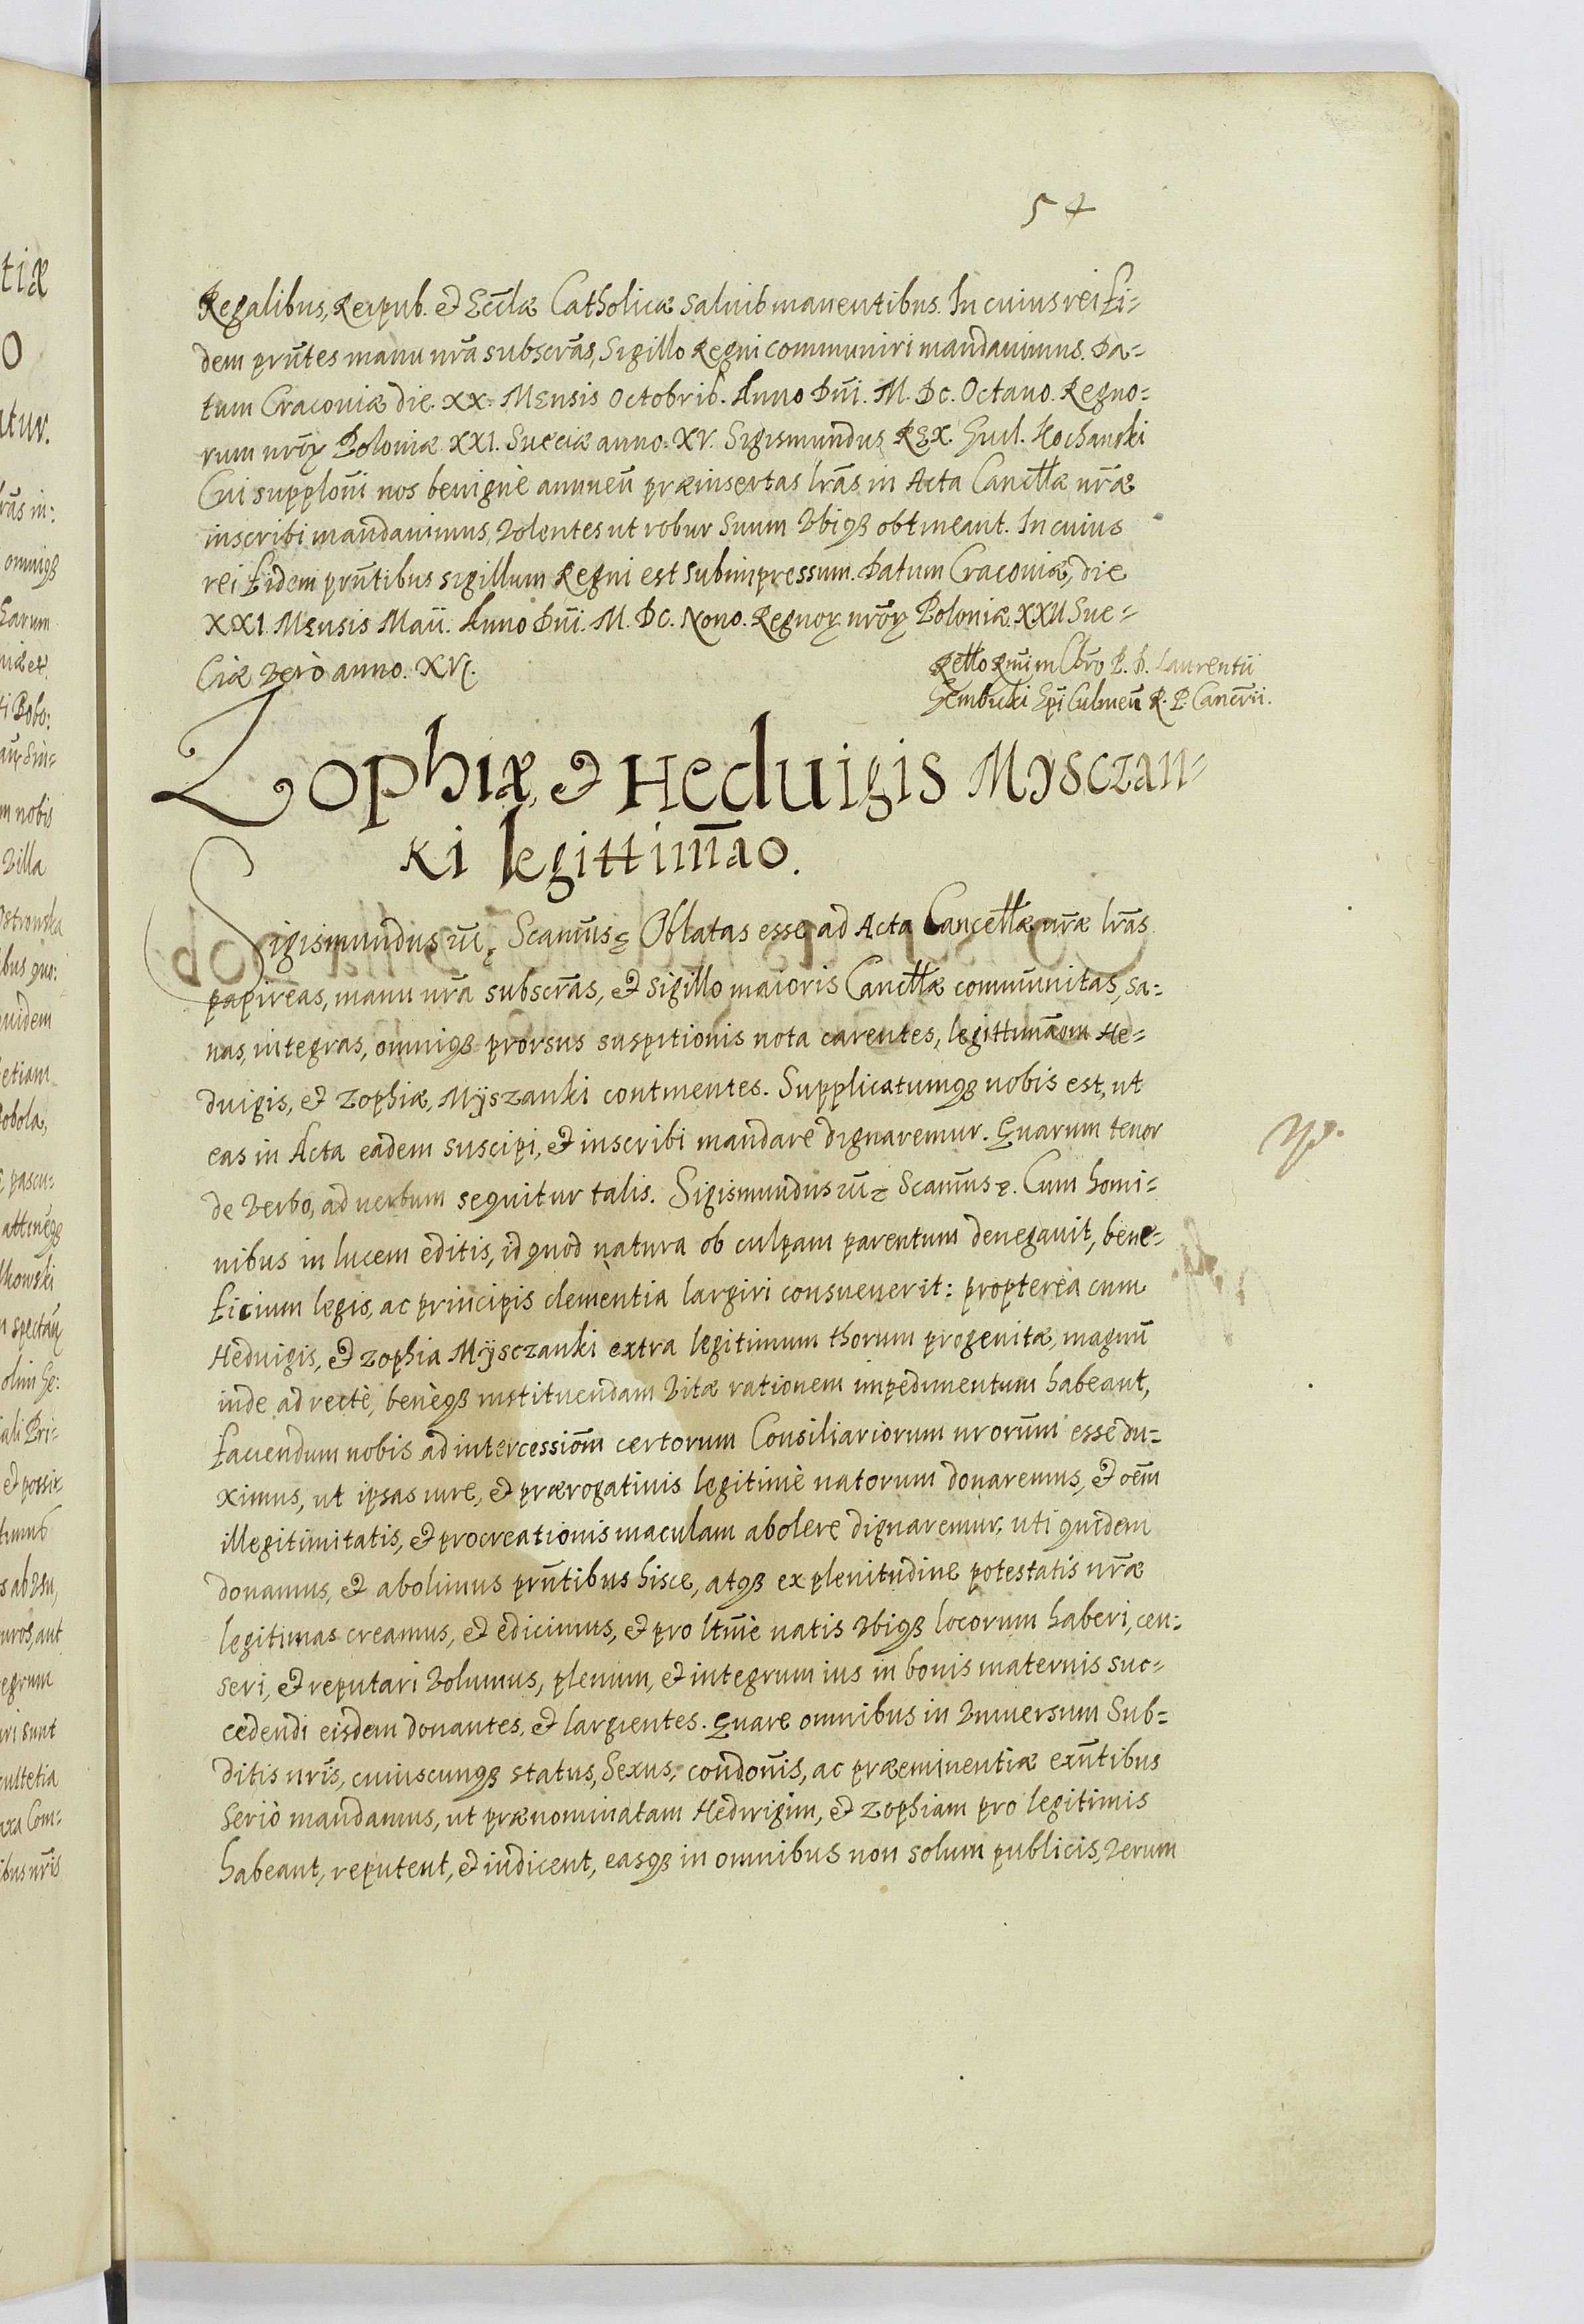 54
Regalibus, Reipub. et Eccłæ Catholicæ salvis manentibus. In cuius rei fi-
dem pñtes manu nr̃a subscr̃as, Sigillo Regni communiri mandavimus. Da-
tum Cracoviæ die XX. Mensis Octobris. Anno Dñi. M. Dc. Octavo. Regno-
rum nr̃oꝝ Poloniæ XXI. Sueciæ anno. XV. Sigismundus REX. Hochanski
Cui supplõni nos benignè annueñ præinsertas lr̃as in Acta Cancłłæ nr̃æ
inscribi mandavimus, Volentes ut robur suum Vbiqȝ obtineant. In cuius
rei fidem pñtibus sigillum Regni est subimpressum. Datum Cracoviæ, die
XXI. Mensis Maii. Anno Dñi. M. Dc. Nono. Regnoꝝ nr̃oꝝ Poloniæ XXII Sue-
ciæ Verò anno. XVI.
Rełło Rñi in Chro P. D. Laurentii
Gembicki Epĩ Culmeñ R. P. Cancrii.
Zophiæ, et Heduigis Mysczan-
ki legittimão.
Sigismundus Scamũs Oblatas esse ad Acta Cancełłæ nr̃æ lr̃as
papireas, manu nr̃a subscr̃as, et sigillo maioris Cancłłæ communitas, sa-
nas, integras, omniqȝ prorsus suspitionis nota carentes, legittimãom He-
duigis, et Zophiæ, Myszanki continentes. Supplicatumqȝ nobis est, ut
eas in Acta eadem suscipi, et inscribi mandare dignaremur. Quarum tenor
de Verbo, ad verbum sequitur talis. Sigismundus Scamũs. Cum homi-
nibus in lucem editis, id quod natura ob culpam parentum denegavit, bene-
ficium legis, ac principis clementia largiri consueverit: propterea cum
Heduigis, et Zophia Mysczanki extra legitimum thorum progenitæ, magnũ
inde ad rectè, benèqȝ instituendam Vitæ rationem impedimentum habeant,
faciendum nobis ad intercessiõm certorum Consiliariorum nrorum esse du-
ximus, ut ipsas iure, et prærogativis legitimè natorum donaremus, et oẽm
illegitimitatis, et procreationis maculam abolere dignaremur, uti quidem
donamus, et abolimus pñtibus hisce, atqȝ ex plenitudine potestatis nr̃æ
legitimas creamus, et edicimus, et pro ltmè natis Vbiqȝ locorum haberi, cen-
seri, et reputari Volumus, plenum, et integrum ius in bonis maternis suc-
cedendi eisdem donantes, et largientes. Quare omnibus in Vniversum Sub-
ditis nr̃is, cuiuscunqȝ status, Sexus, condõnis, ac præeminentiæ exñtibus
seriò mandamus, ut prænominatam Hedwigim, et Zophiam pro legitimis
habeant, reputent, et iudicent, easqȝ in omnibus non solum publicis, Verum